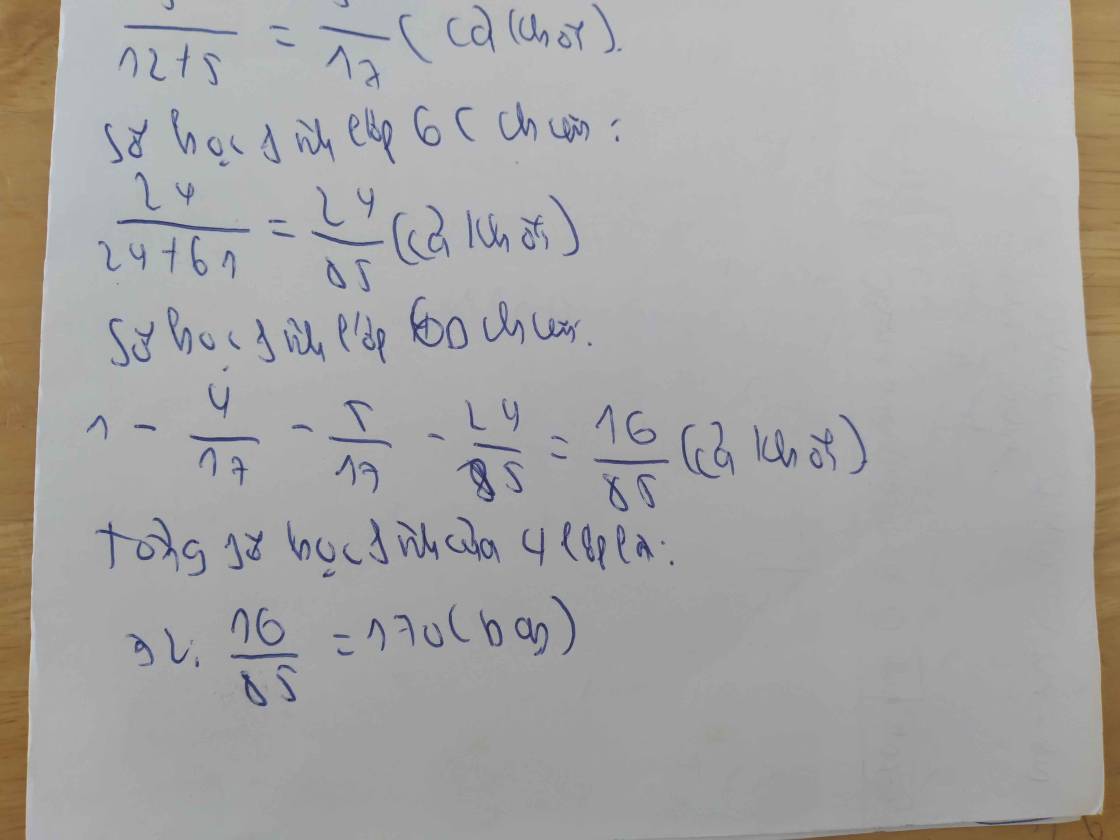 5/(12+5) = 5/17 (cả khối).
Số học sinh lớp 6C chiếm:
24/(24+61) = 24/85 (cả khối)
Số học sinh lớp 6D chiếm:
1 - 4/17 - 5/17 - 24/85 = 16/85 (cả khối)
Tổng số học sinh của 4 lớp là:
32: 16/85 = 170 (bạn)